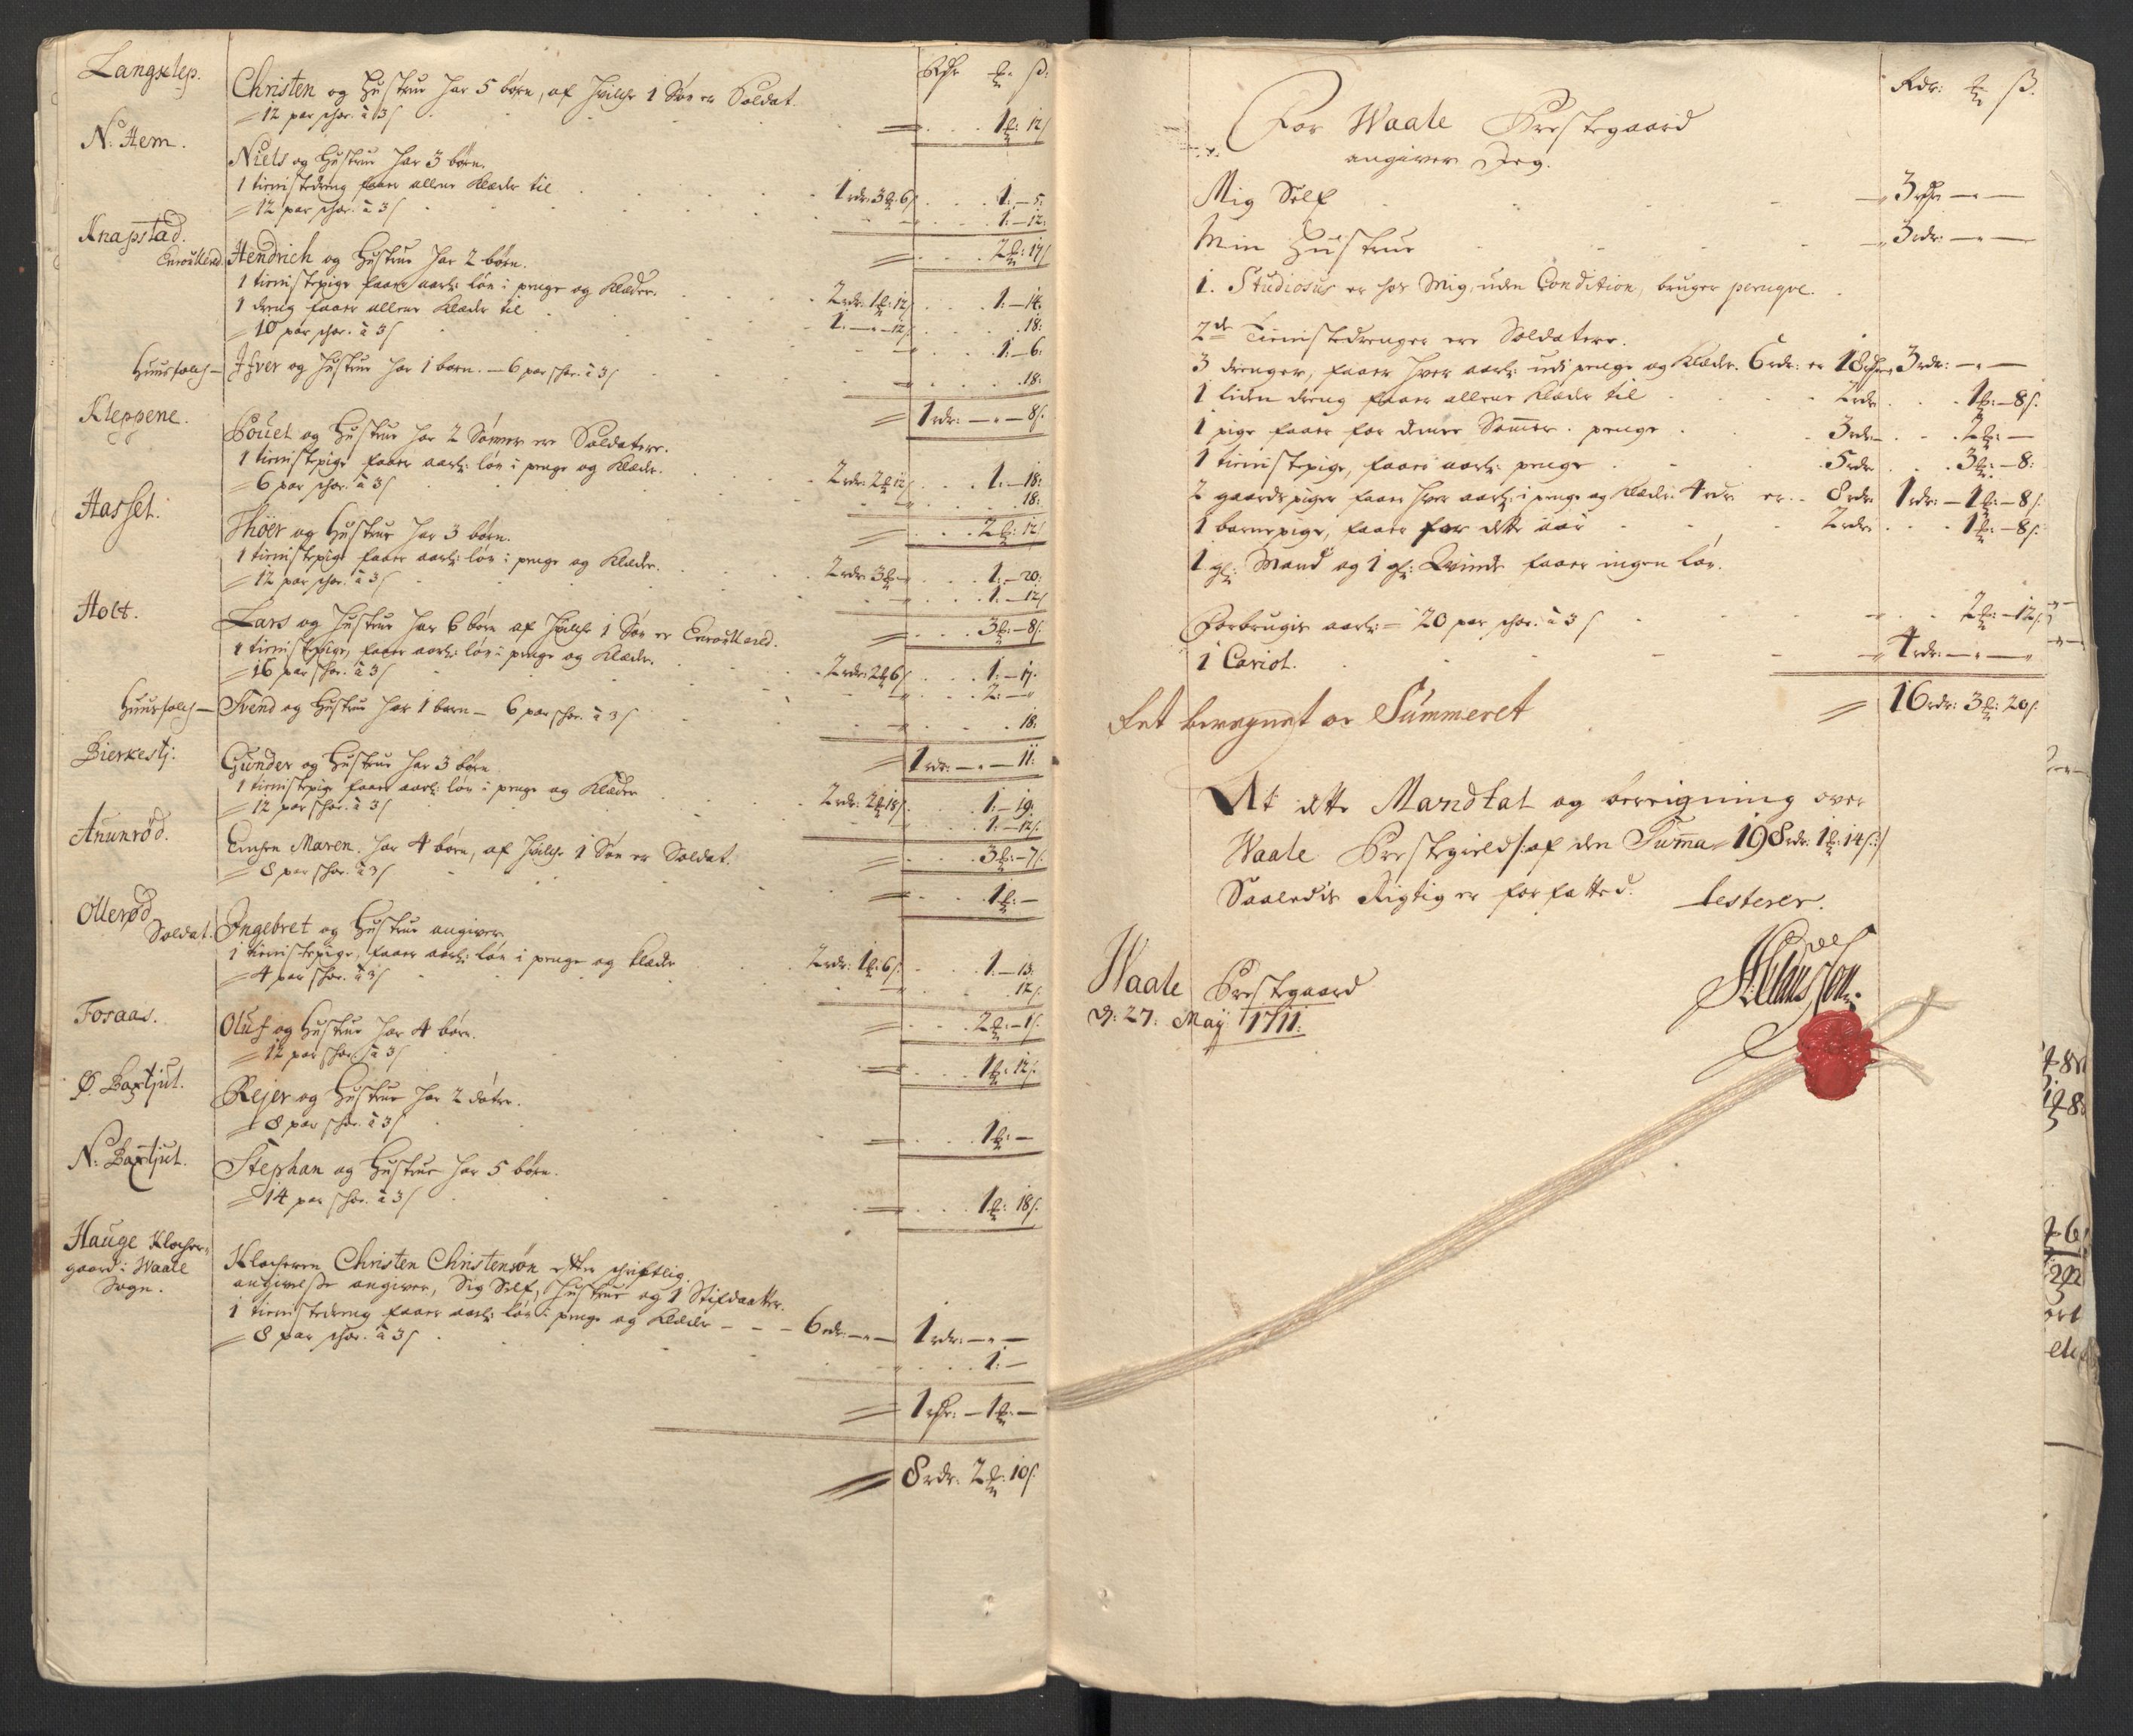 Rdr ß:
Langslep. Christen og Hustrue har 5 børn, af hvilche 1 Søn er Soldat.
= 12 par schoe. à 3 s = . . . 1 12/
N: Hem.
Niels og Hustrue har 3 børn.
1 tienistedreng faaer allene Klæder til 1 rdr. 3 6/ . . . 1. – 5.
= 12 par schoe. à 3 s . . . 1. – 12.
= 2 : 17/
Knapstad.
Enroullered. Hendrich og Hustrue har 2 børn.
1 tienistepige faaer aarl: løn i penge og Klæder. 2 rdr. 1 12/ . . . 1. – 14.
1 dreng faaer allene Klæder til 1. – 12/ . . . 18:
= 10 par schoe. à 3 s . . . 1. – 6.
Huusfolch – Ifver og Hustrue har 1 barn. – 6 par schoe. à 3 s . . . 18:
= 1 rdr: – – 8/.
Kleppene.
Pouel og Hustrue har 2 Sønner ere Soldatere.
1 tienistepige faaer aarl: løn i penge og Klæder. 2 rdr. 2 12/ . . . 1. – 18:
= 6 par schoe. à 3 s . . . 18:
= 2 : 12/
Hasset.
Thoer og Hustrue har 3 børn.
1 tienistepige faaer aarl: løn i penge og Klæder. 2 rdr 3 – . . . 1. – 20:
= 12 par schoe. à 3 s . . . 1. – 12/
= 3 : – 8/.
Holt.
Lars og Hustrue har 6 børn af hvilche 1 Søn er Enroullered.
1 tienistepige, faaer aarl: løn i penge og Klæder. 2 rdr. 2 6/ . . . 1. – 17.
= 16 par schoe. à 3 s . . . 2. –
Huusfolch – Svend og Hustrue har 1 barn – 6 par schoe. à 3 s . . . 18:
= 1 rdr: – – 11.
Bierkestj:
Gunder og Hustrue har 3 børn
1 tienistepige faaer aarl: løn i penge og Klæder 2 rdr. 2 18/ . . . 1. – 19.
= 12 par schoe. à 3 s . . . 1. – 12/.
= 3 : – 7/.
Anunrød.
Enchen Maren. har 4 børn, af hvilche 1 Søn er Soldat.
= 8 par schoe. à 3 s = 1 : –
Ollerød
Soldat. Ingebret og Hustrue angiver.
1 tienistepige, faaer aarl: løn i penge og Klæder 2 rdr. 1 6/ . . . 1. – 13.
= 4 par schoe. à 3 s . . . 12/.
= 2 : – 1/.
Foraas.
Oluf og Hustrue har 4 børn.
= 12 par schoe. à 3 s = 1 : 12/.
Ø. Baxtjul.
Rejer og Hustrue har 2 døtre.
= 8 par schoe. à 3 s = 1 : –
N: Baxtjul.
Stephan og Hustrue har 5 børn.
= 14 par schoe. à 3 s = 1 : 18/.
Hauge Klocher
gaard i Waale
Sogn.
Klocheren Christen Christensøn efter schriftlig
angivelse angiver, Sig Self, Hustrue og 1 Stifdaatter.
1 tienistedreng faaer aarl: løn i penge og Klæder – – – 6 rdr. – – 1 rdr: – –
= 8 par schoe. à 3 s . . . 1. –
= 1 rdr: – 1 : –
8 rdr. 2 : 10/.
Rdr: ß.
For Waale Prestegaard
angiver Jeg.
Mig Self – 3 rdr – –
Min Hustrue – 3 rdr: – –
1. Studiosus er hos Mig, uden Condition, bruger peruqve.
2de Tienistedrenger ere Soldatere.
3 drenger, faaer hver aarl: udi penge og Klæder. 6 rdr: er 18 rdr 3 rdr: – –
1 liden dreng faaer allene Klæder til 2 rdr . . . 1 : – 8/.
1 pige faaer for denne Sommer. penge 3 rdr – . . . 2 : –
1 tienistepige, faaer aarl: penge 5 rdr . . . 3 : – 8:
2 gaards piger faaer hver aarl: i penge og Klæder 4 rdr er . . 8 rdr 1 rdr: – 1 : – 8/.
1 barnepige, faaer for dette aar 2 rdr . . . 1 : – 8/.
1 gl: Mand og 1 gl: Qvinde faaer ingen løn.
Forbrugis aarl: = 20 par schoe. à 3 s . . . 2 : – 12/.
1 Cariol. 4 rdr: – –
Let beregnet er Summeret = 16 rdr: 3 : 20/.
At dette Mandtal og beregning over
Waale Prestegield /: af den Summa 198 rdr. 1 : 14/ :/
Saaledis Rigtig er forfatted. testerer.
Waale Prestegaard
d: 27: Maÿ 1711.